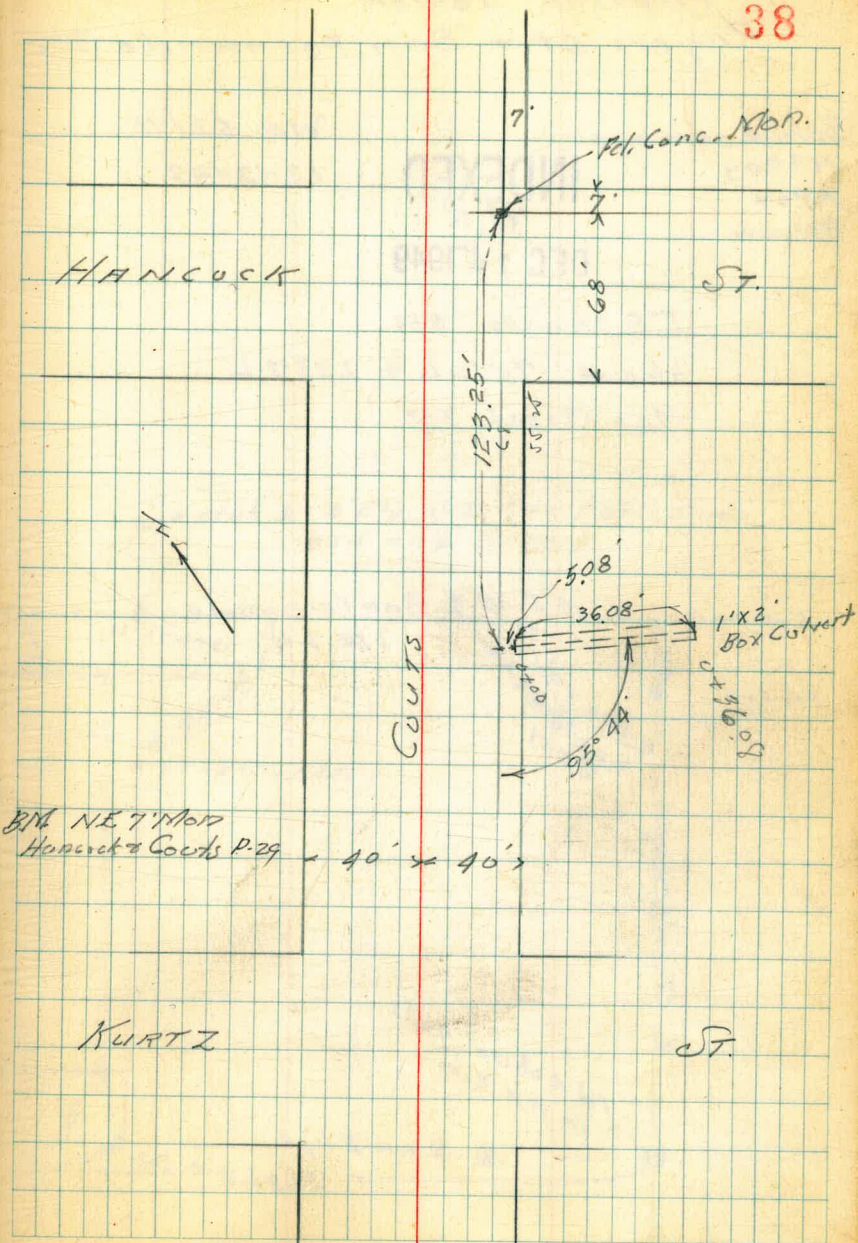 38
7'
Fd. Conc. Mon.
7'
HANCOCK
68'
ST.
123.25'
55.25
5.08'
36.08'
1'x2'
Box Culvert
0+00
COUTS
95° 44'
BM NE 7' Mon
Hancock & Couts P-29
40' 40'
KURTZ
ST.